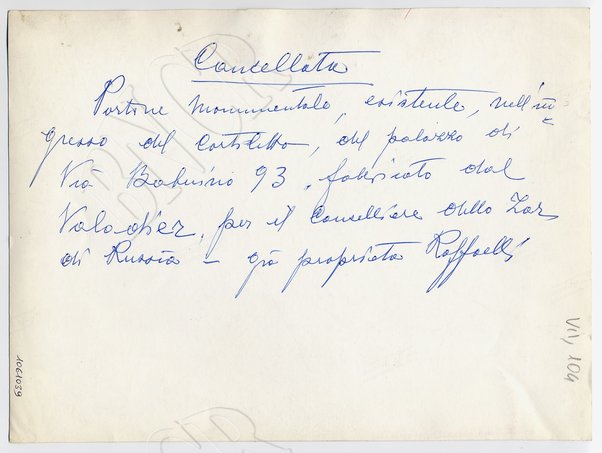 Cancellata
Portone monumentale, esistente, nell'in=
gresso del cortiletto, del palazzo di
Via Babuino 93, fabricato dal
Valadier, per il Conselliere dello Zar
di Russia - già proprietà Raffaelli
VII, 104
1061039